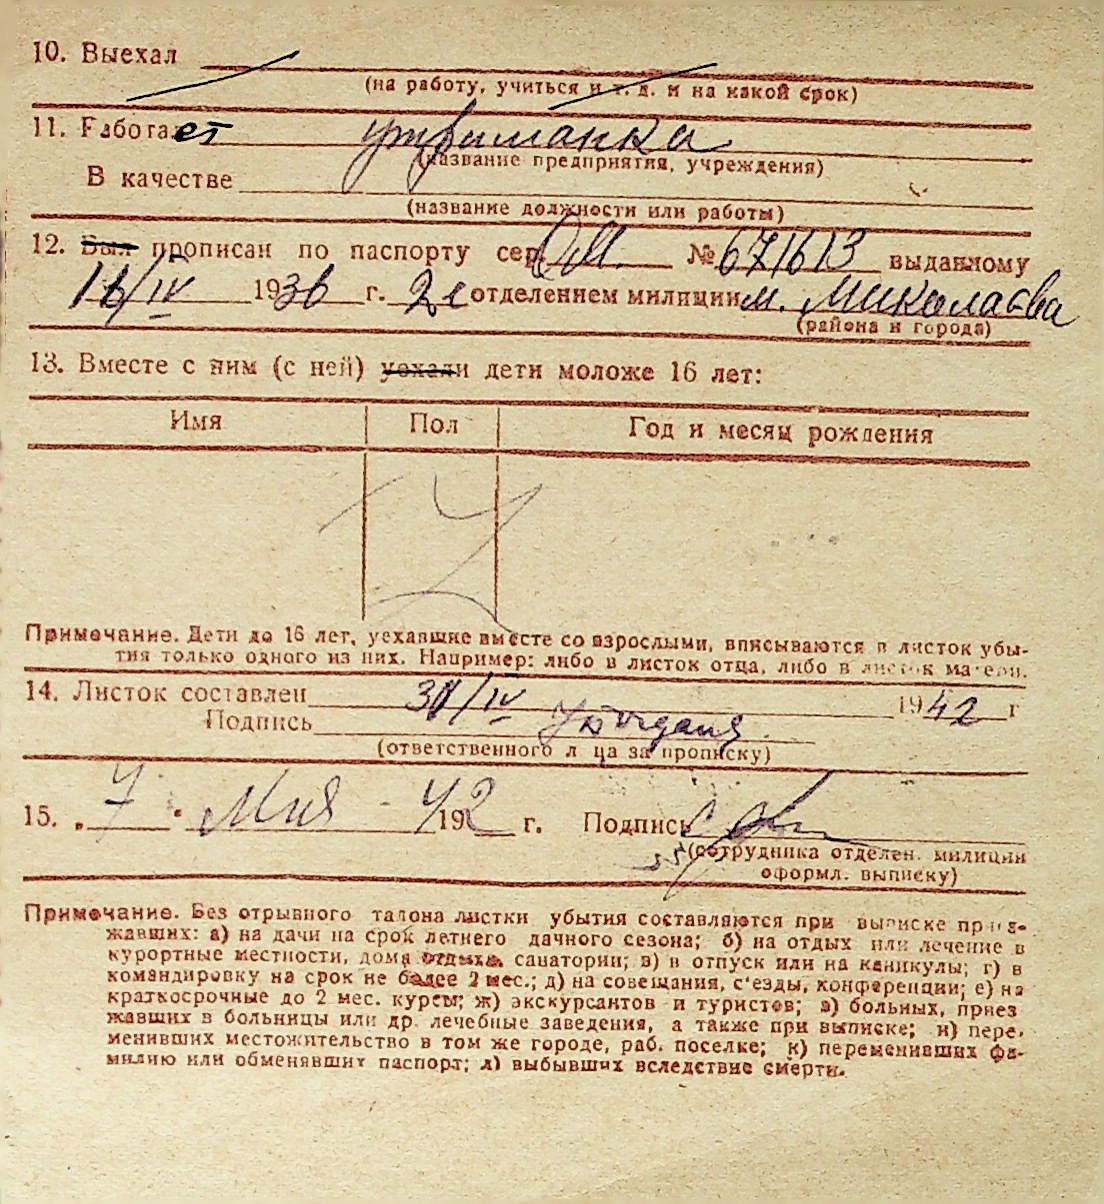 10. Выехал
(на работу, учиться и т. д. и на какой срок)
11. Работает утриманка
(название предприятия, учреждения)
В качестве
(название должности или работы)
12. Был прописан по паспорту сер. ОМ. № 671613 выданному
16/IV 1936 г. 2е отделением милиции м. Миколаєва
(района и города)
13. Вместе с ним (с ней) уехали дети моложе 16 лет:
Имя Пол Год и месяц рождения
Примечание. Дети до 16 лет, уехавшие вместе со взрослыми, вписываются в листок убы-
тия только одного из них. Например: либо в листок отца, либо в листок матери.
14. Листок составлен 30/IV 1942 г
Подпись
(ответственного л ца за прописку)
15. „7" Мая 42 г. Подпись
(сотрудника отделен. милиции
оформл. выписку)
Примечание. Без отрывного талона листки убытия составляются при выписке приез-
жавших: а) на дачи на срок летнего дачного сезона; б) на отдых или лечение в
курортные местности, дома отдыха, санатории; в) в отпуск или на каникулы; г) в
командировку на срок не более 2 мес.; д) на совещания, с'езды, конференции; е) на
краткосрочные до 2 мес. курсы; ж) экскурсантов и туристов; з) больных, приез
жавших в больницы или др. лечебные заведения, а также при выписке; и) пере-
менивших местожительство в том же городе, раб. поселке; к) переменивших фа-
милию или обменявших паспорт; л) выбывших вследствие смерти.